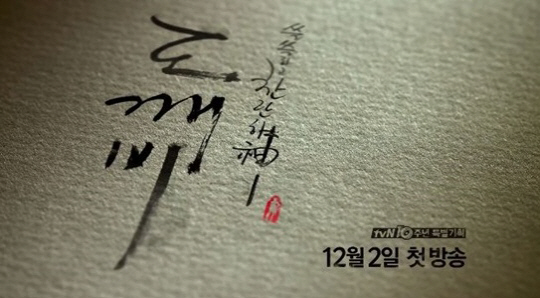 도깨비
쓸쓸하고 찬란하神
tvN10주년 특별기획
12월 2일 첫방송